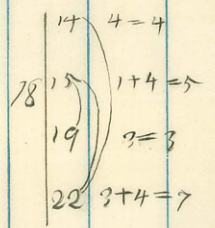 14 4 = 4
78 15 1 + 4 = 5
19 3 = 3
22 3 + 4 = 7